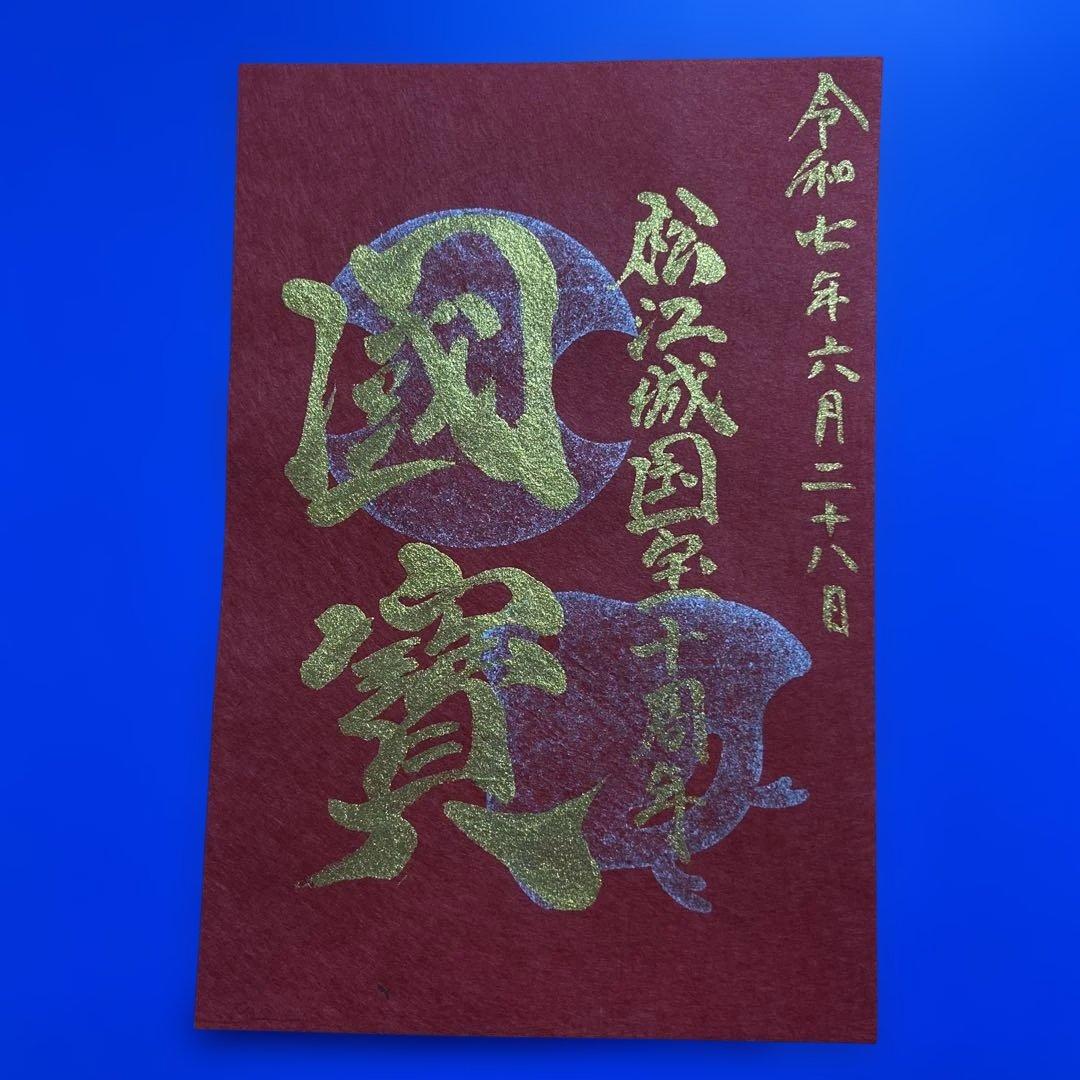 令和七年六月二十八日
松江城国宝十周年
國寳